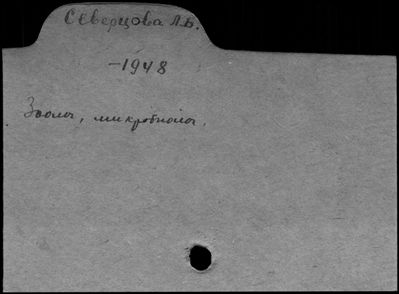 Северцова Л.Б.
-1948
Зоолог, микробиолог.